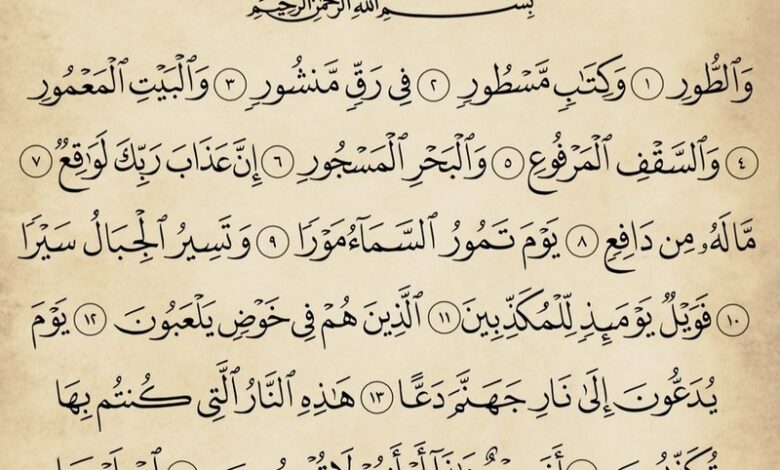 بِسْمِ اللَّهِ الرَّحْمَٰنِ الرَّحِيمِ
وَٱلطُّورِ ١ وَكِتَٰبٍ مَّسْطُورٍ ٢ فِي رَقٍّ مَّنشُورٍ ٣ وَٱلْبَيْتِ ٱلْمَعْمُورِ
٤ وَٱلسَّقْفِ ٱلْمَرْفُوعِ ٥ وَٱلْبَحْرِ ٱلْمَسْجُورِ ٦ إِنَّ عَذَابَ رَبِّكَ لَوَٰقِعٌ ٧
مَّا لَهُۥ مِن دَافِعٍ ٨ يَوْمَ تَمُورُ ٱلسَّمَآءُ مَوْرًا ٩ وَتَسِيرُ ٱلْجِبَالُ سَيْرًا
١٠ فَوَيْلٌ يَوْمَئِذٍ لِّلْمُكَذِّبِينَ ١١ ٱلَّذِينَ هُمْ فِي خَوْضٍ يَلْعَبُونَ ١٢ يَوْمَ
يُدَعُّونَ إِلَىٰ نَارِ جَهَنَّمَ دَعًّا ١٣ هَٰذِهِ ٱلنَّارُ ٱلَّتِي كُنتُم بِهَا